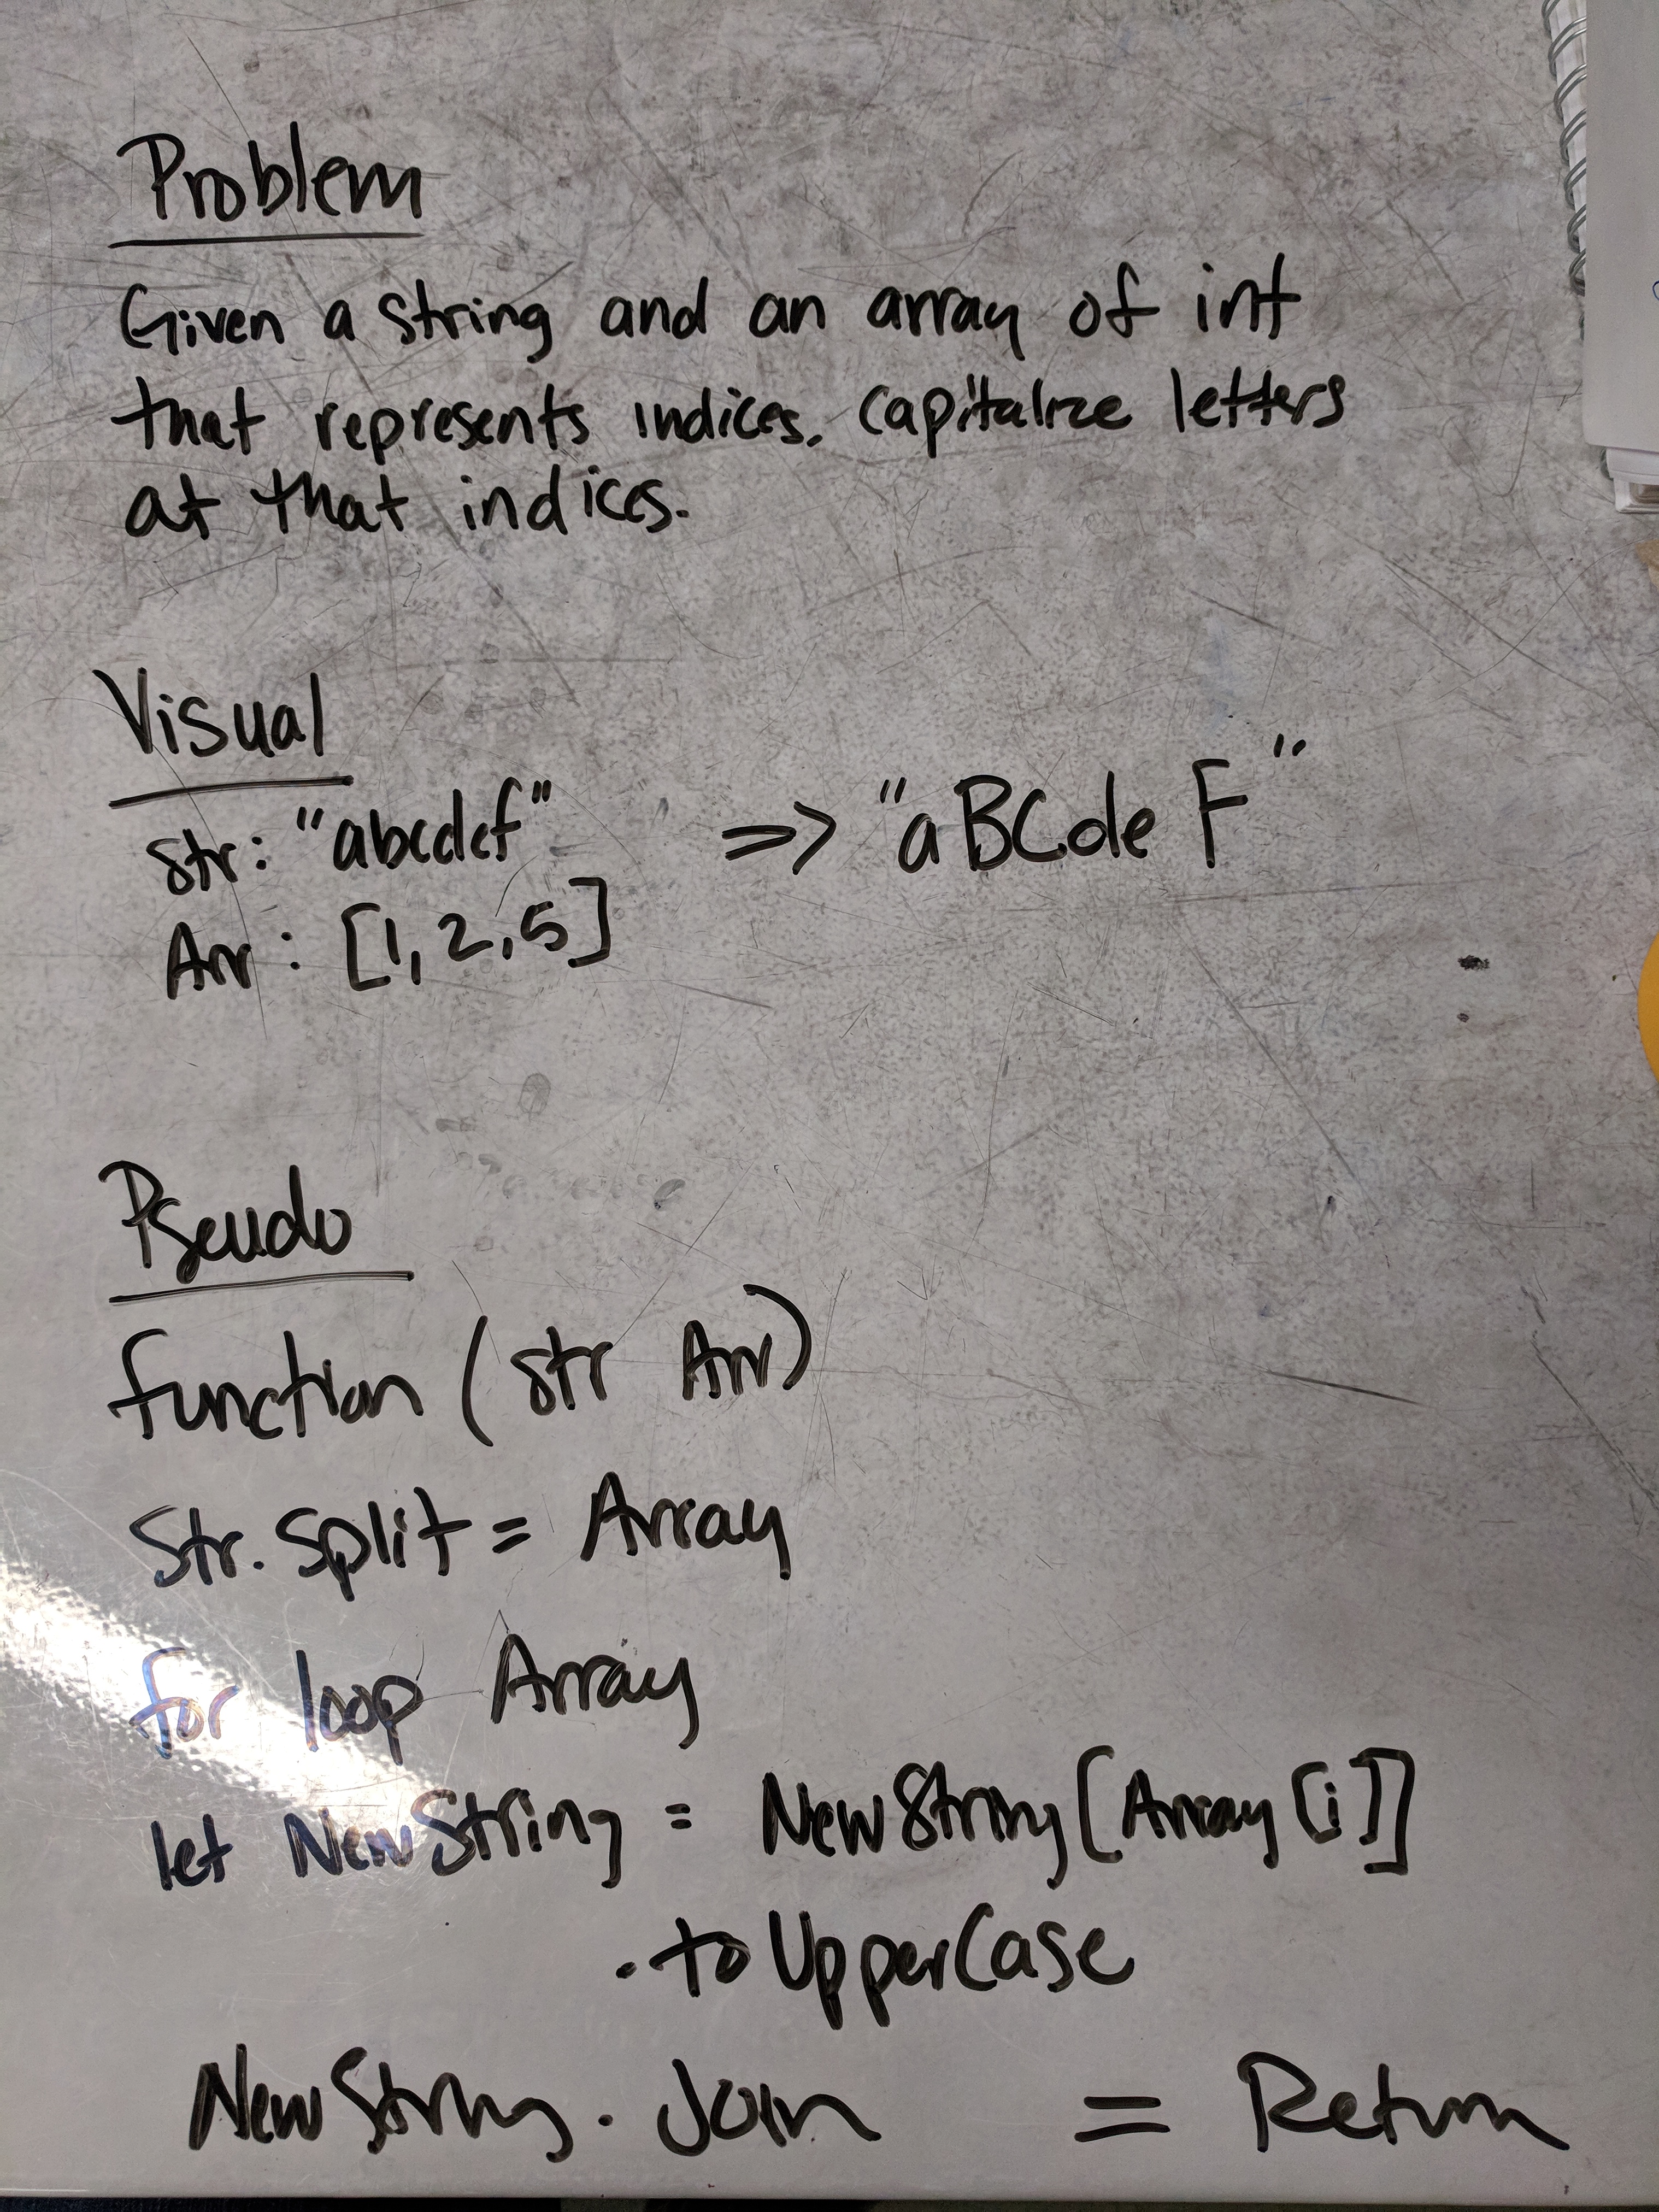 Problem
Given a string and an array of int
that represents indices. Capitalize letters
at that indices.
Visual
str: "abcdef" => "aBCdeF"
Arr: [1, 2, 5]
Pseudo
function (str Arr)
Str.split = Array
for loop Array
let NewString = NewString[Array[i]]
.toUpperCase
NewString.Join = Return